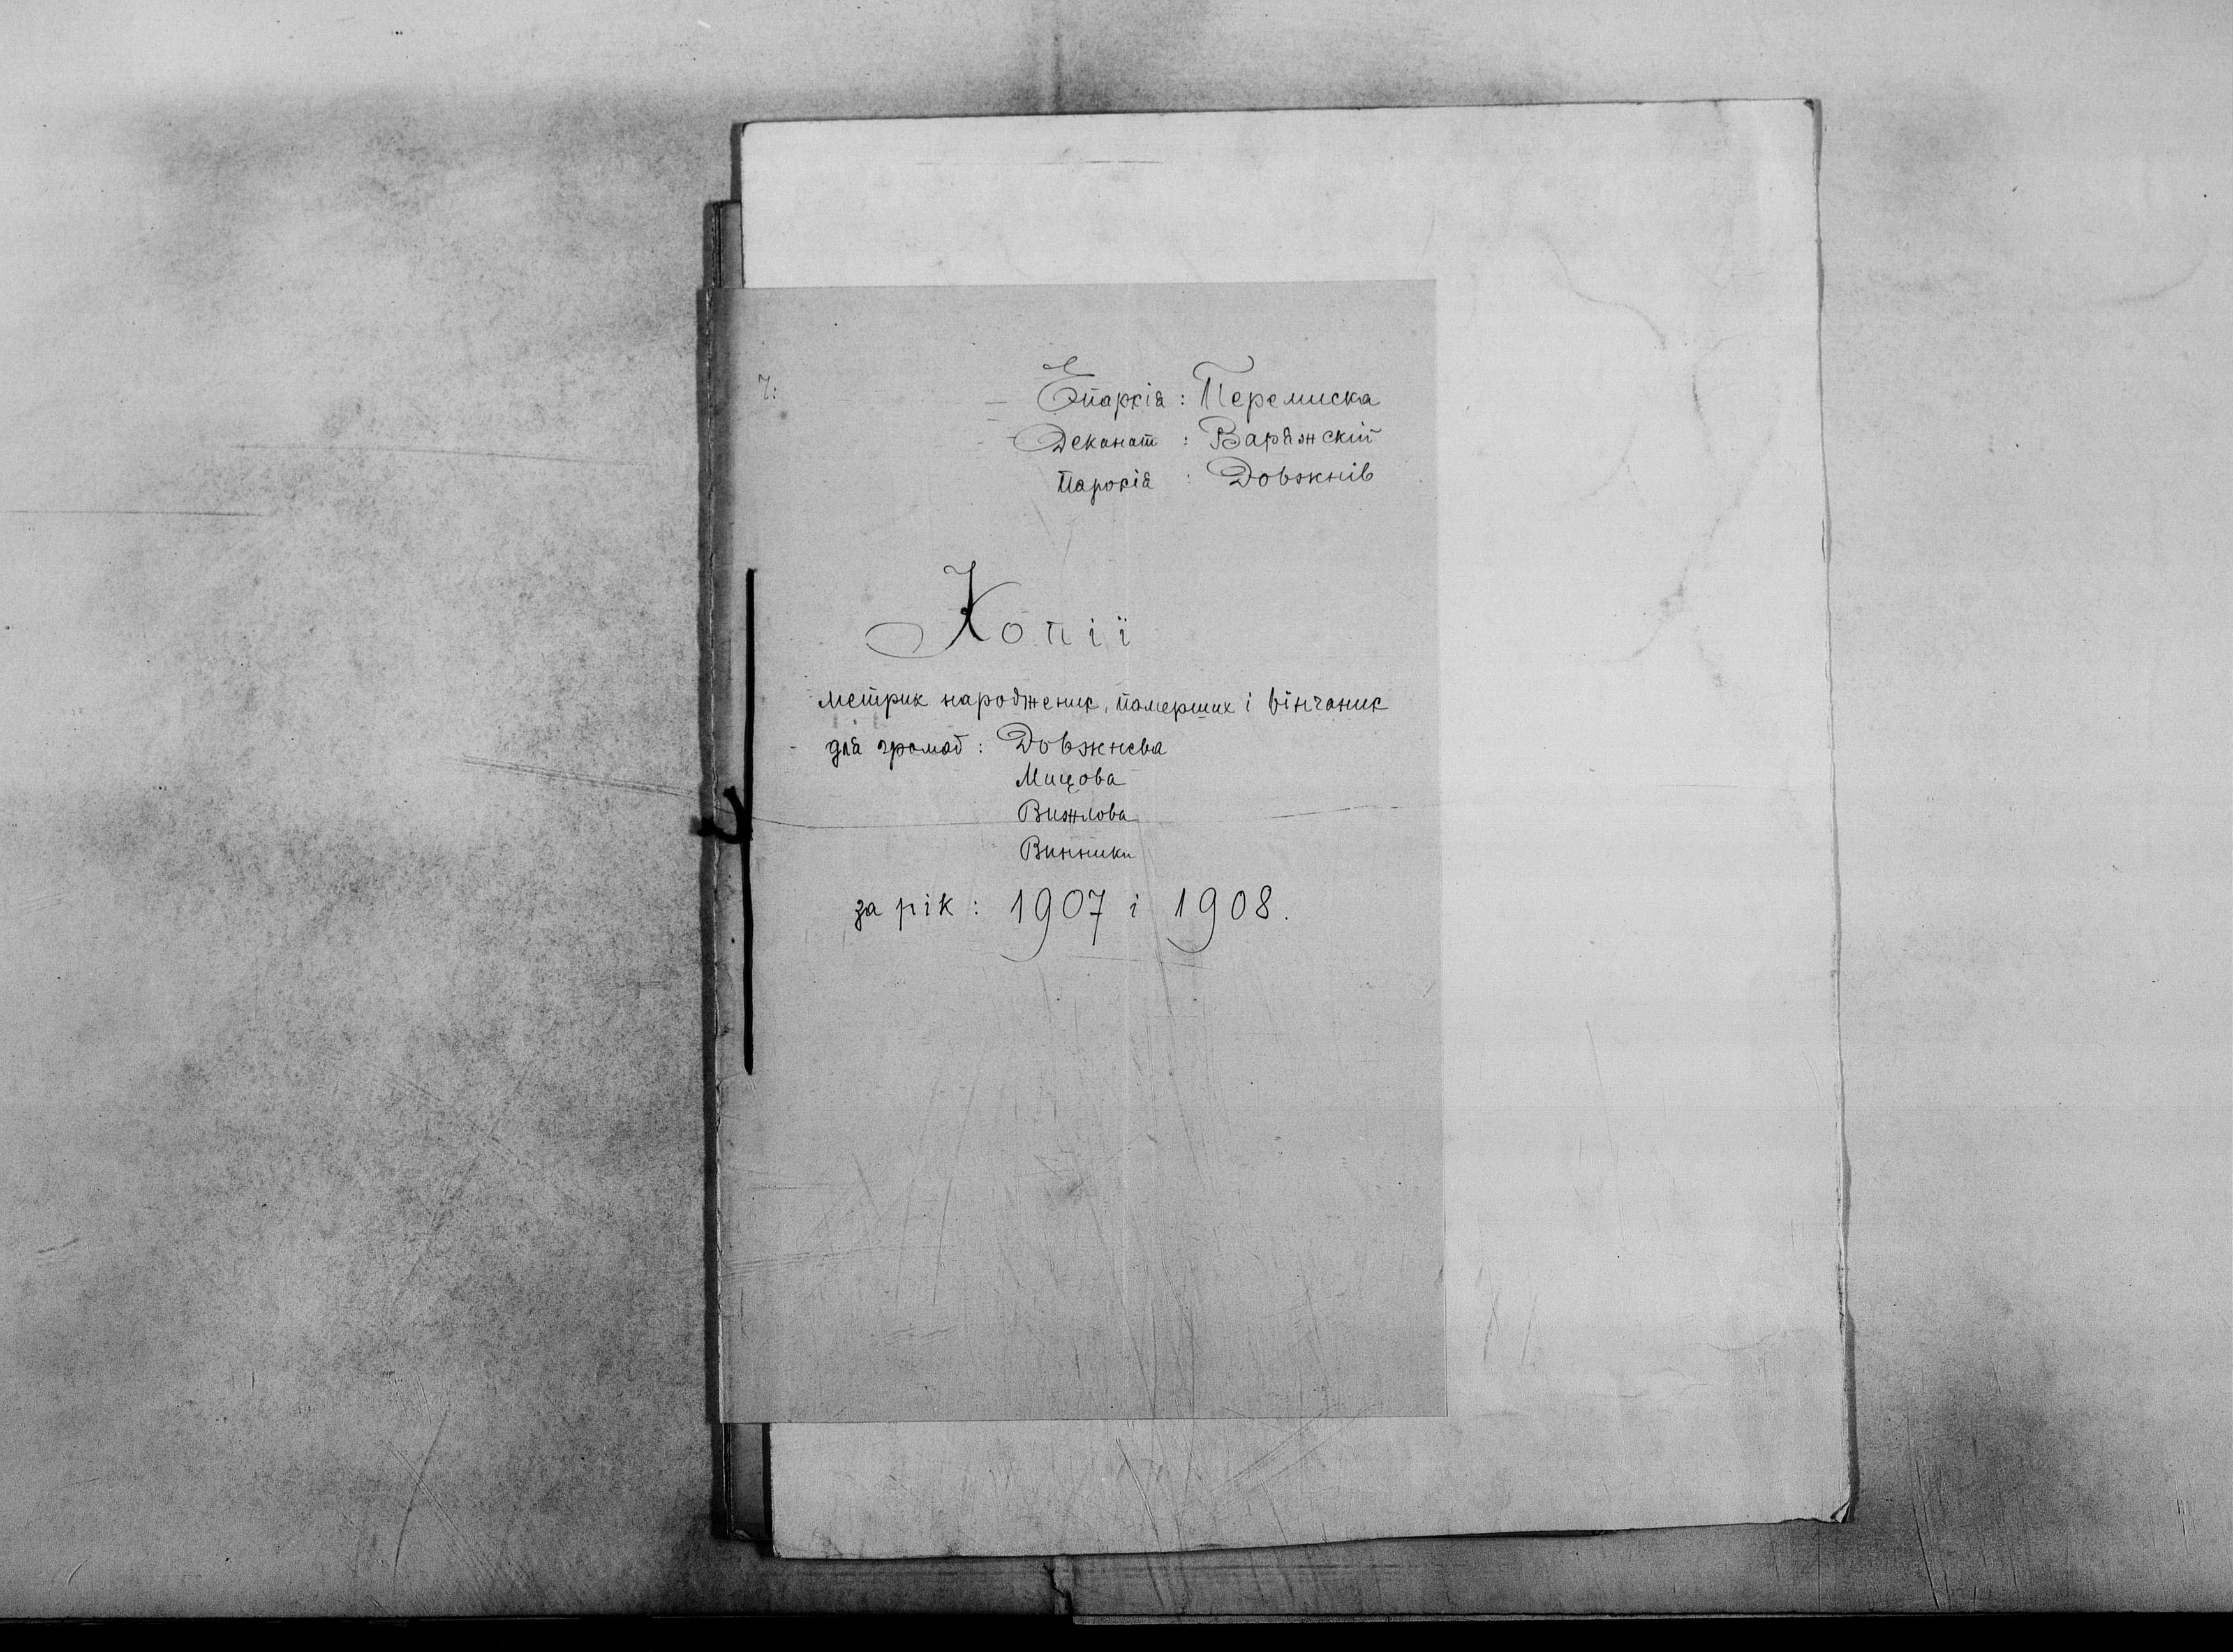 Ч:
Епархія : Перемиска
Деканат : Варяжскій
Парохія : Довжнів
Копії
метрик народжених, померших і вінчаних
для громад : Довжнева
Мицова
Вижлова
Винники
за рік : 1907 і 1908.